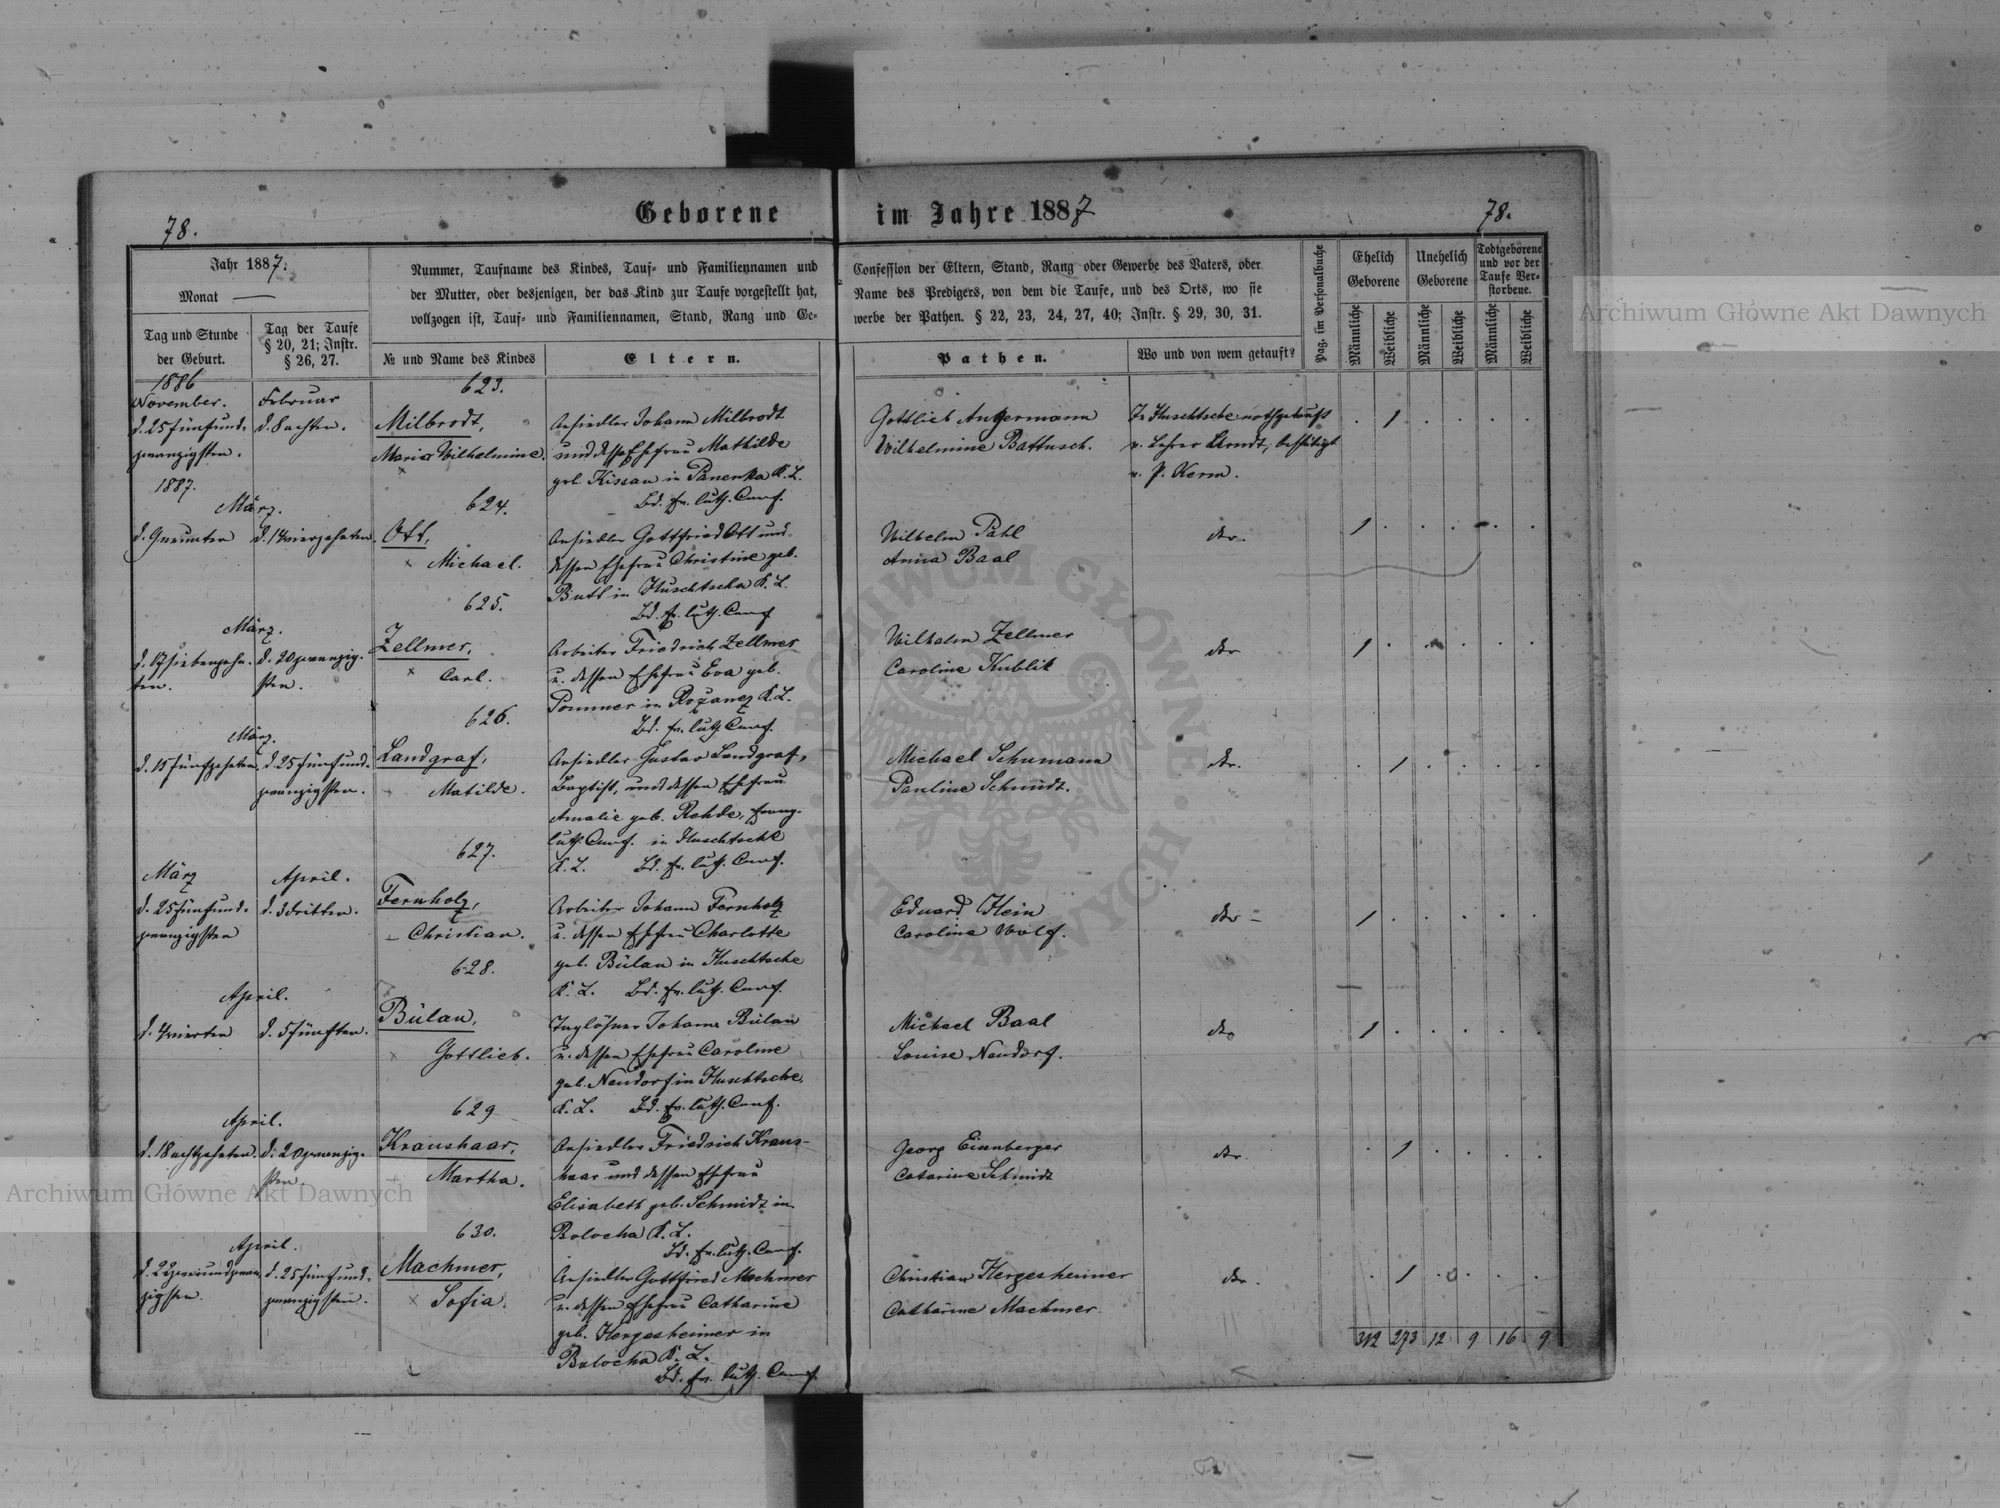 Geborene im Jahre 1887
78.
78.
Jahr 1887.
Monat
Tag und Stunde
der Geburt.
Tag der Taufe
§ 20, 21; Instr.
§ 26, 27.
Nummer, Taufname des Kindes, Tauf- und Familiennamen und
der Mutter, oder desjenigen, der das Kind zur Taufe vorgestellt hat,
vollzogen ist, Tauf- und Familiennamen, Stand, Rang und Ge-
№ und Name des Kindes
Eltern.
Confession der Eltern, Stand, Rang oder Gewerbe des Vaters, oder
Name des Predigers, von dem die Taufe, und des Orts, wo sie
werbe der Pathen. § 22, 23, 24, 27, 40; Instr. § 29, 30, 31.
Pathen.
Wo und von wem getauft?
Pag. im Personalbuche
Ehelich
Geborene
Unehelich
Geborene
Todtgeborene
und vor der
Taufe Ver-
storbene.
Männliche
Weibliche
Männliche
Weibliche
Männliche
Weibliche
1886
November.
d. 25 fünfund-
zwanzigsten.
Februar
d. 8 achten.
623.
Milbrodt,
Maria Wilhelmine.
Ansiedler Johann Milbrodt
und dessen Ehefrau Mathilde
geb. Kissau in Panenka K. L.
Bd. ev. luth. Conf.
Gottlieb Angermann
Wilhelmine Battusch.
In Huschtsche nothgetauft
v. Lehrer Arndt, bestätigt
v. P. Kerm.
1887.
März.
d. 9 neunten
d. 14 vierzehnten.
624.
Ott,
Michael.
Ansiedler Gottfried Ott und
dessen Ehefrau Christine geb.
Butt in Huschtscha K. L.
Bd. ev. luth. Conf
Wilhelm Pahl
Anna Baal
der.
März.
d. 17 siebenzehn-
ten.
d. 20 zwanzig-
sten.
625.
Zellmer,
Carl.
Arbeiter Friedrich Zellmer
u. dessen Ehefrau Eva geb.
Pommer in K. L.
Bd. ev. luth. Conf.
Wilhelm Zellmer
Caroline Kublik
der
März.
d. 15 fünfzehnten.
d. 25 fünfund-
zwanzigsten.
626.
Landgraf,
Matilde.
Ansiedler Gustav Landgraf,
Baptist, und dessen Ehefrau
Amalie geb. Rohde, evang-
luth. Conf. in Huschtsche
K. L. Bd. ev. luth. Conf.
Michael Schumann
Pauline Schmidt.
der.
März
d. 25 fünfund-
zwanzigsten
April.
d. 3 dritten.
627.
Fernholz,
Christian.
Arbeiter Johann Fernholz
u. dessen Ehefrau Charlotte
geb. Bülau in Huschtsche
K. L. Bd. ev. luth. Conf.
Eduard Hein
Caroline Wolf.
der
April.
d. 4 vierten
d. 5 fünften.
628.
Bülau,
Gottlieb.
Taglöhner Johann Bülau
u. dessen Ehefrau Caroline
geb. Neudorf in Huschtsche,
K. L. Bd. ev. luth. Conf.
Michael Baal
Louise Neudorf.
der
April.
d. 18 achtzehnten.
d. 20 zwanzig-
sten.
629
Kraushaar,
Martha.
Ansiedler Friedrich Kraus-
haar und dessen Ehefrau
Elisabeth geb. Schmidt in
Bolocha K. L.
Bd. ev. luth. Conf.
Georg Eisenberger
Catarine Schmidt
der
April.
d. 22 zweiundzwan-
zigsten.
d. 25 fünfund-
zwanzigsten.
630.
Machmer,
Sofia.
Ansiedler Gottfried Machmer
u. dessen Ehefrau Catharine
geb. Hergesheimer in
Bolocha K. L.
Bd. ev. luth. Conf.
Christian Hergesheimer
Catharine Machmer.
der.
312 273 12 9 16 9
Archiwum Główne Akt Dawnych
Archiwum Główne Akt Dawnych
ARCHIWUM GŁÓWNE · AKT DAWNYCH ·